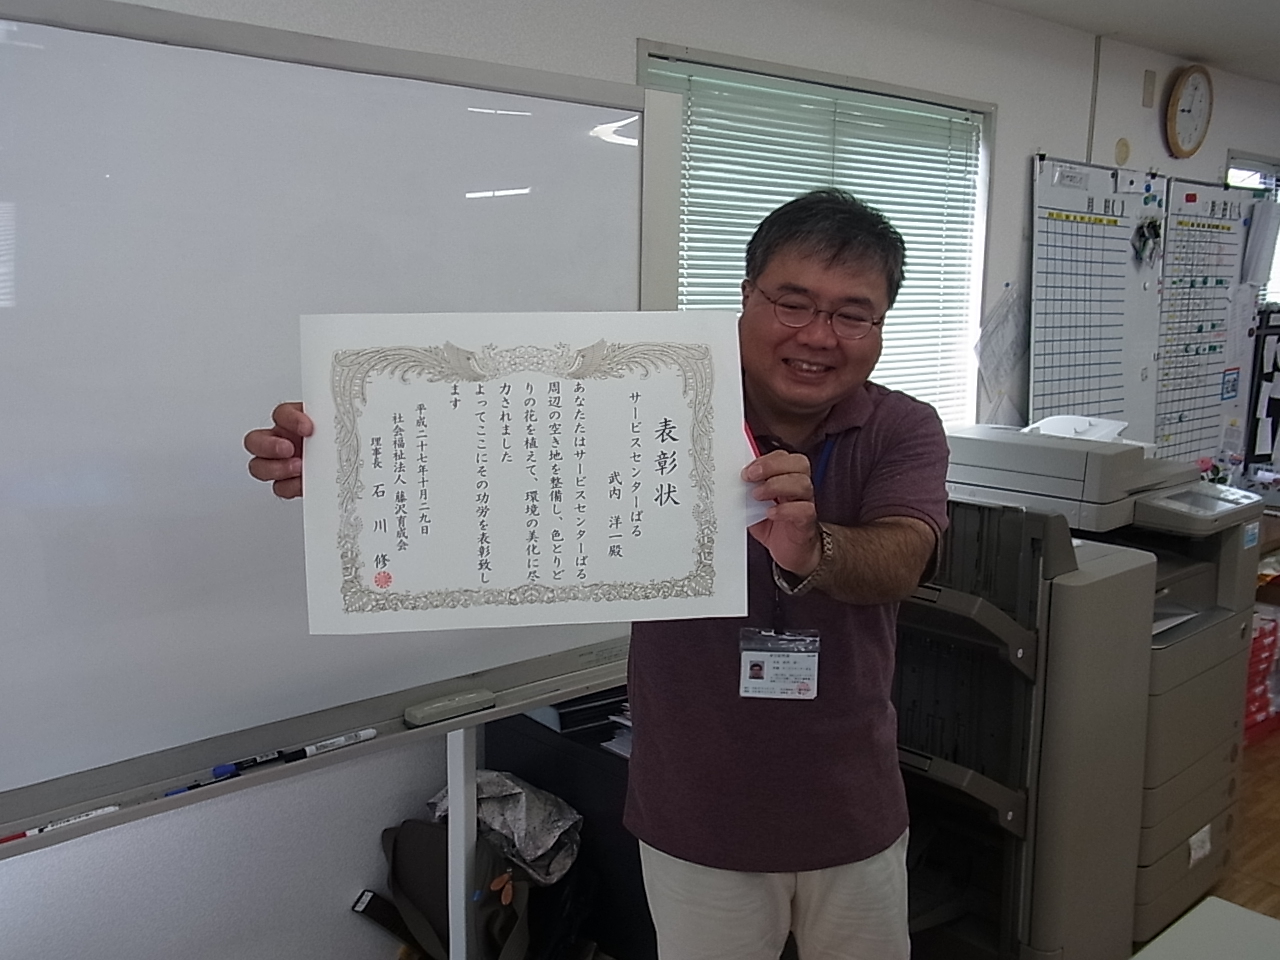 表彰状
サービスセンターぱる
武内 洋一殿
あなたたはサービスセンターぱる
周辺の空き地を整備し、色とりど
りの花を植えて、環境の美化に尽
力されました
よってここにその功労を表彰致し
ます
平成二十七年十月二九日
社会福祉法人 藤沢育成会
理事長 石川 修